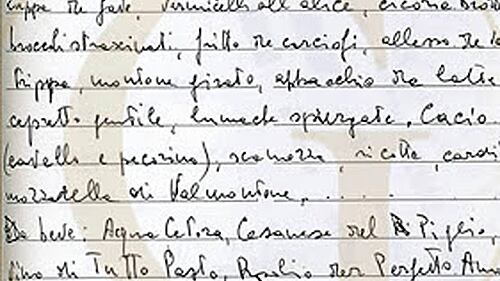 zuppa di fave, vermicelli all'alice, cicoria
broccoli strascinati, fritto di carciofi, allesso di
trippa, montone girato, abbacchio da latte
capretto gentile, lumache spurgate, Cacio
(cavallo e pecorino), scamozza, ricotta,
mozzarella di Valmontone, . . . . .
Da bere: Acqua Cetosa, Cesanese del Piglio,
vino di Tutto Pasto, Rosolio del Perfetto